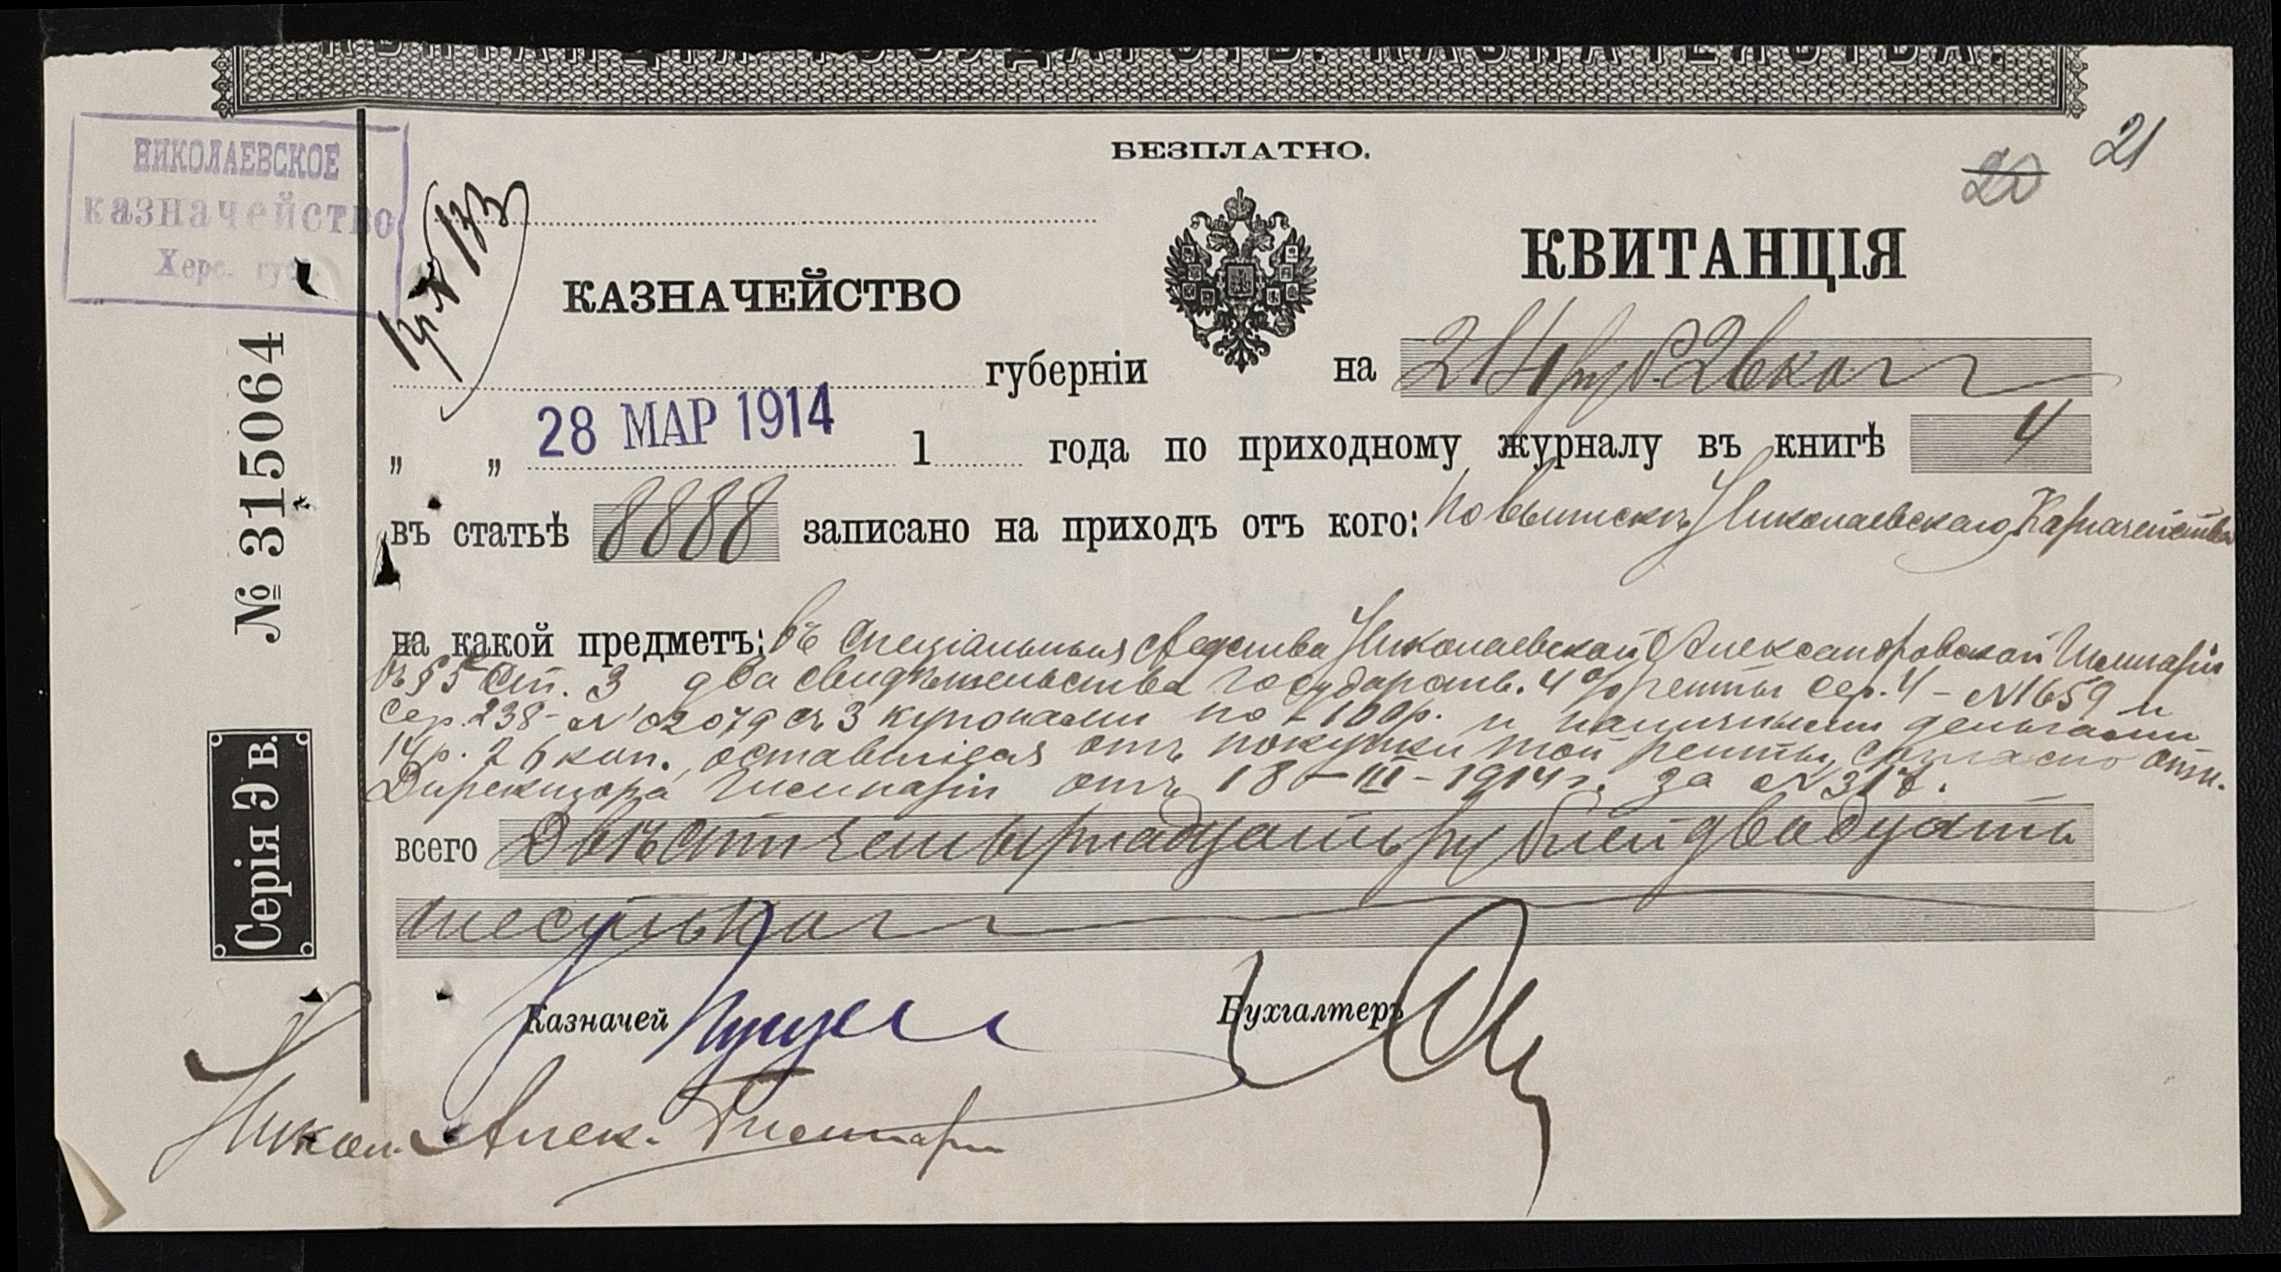 КВИТАНЦІЯ ГОСУДАРСТВ. КАЗНАЧЕЙСТВА.
НИКОЛАЕВСКОЕ
казначейство
Херс. губ.
БЕЗПЛАТНО.
20
21
№ 133
КАЗНАЧЕЙСТВО
КВИТАНЦІЯ
губерніи
на 214 руб. 26 коп
„ „ 28 МАР 1914 1 года по приходному журналу въ книгѣ 4
въ статьѣ 8888 записано на приходъ отъ кого: По выпискѣ Николаевскаго Казначейства
на какой предметъ: Въ спеціальныя средства Николаевской Александровской Гимназіи
въ § 5 ст. 3 два свидѣтельства государств. 4% ренты сер. 4 - № 1659 и
сер. 238 - № 02079 съ 3 купонами по 100 р. и наличными деньгами
14 р. 26 коп., оставшіеся отъ покупки той ренты, согласно отн.
Директора Гимназіи отъ 18-III-1914 г. за № 317.
всего Двѣсти четырнадцать рублей двадцать
шесть коп
Казначей
Бухгалтеръ
Никол. Алек. Гимназіи
№ 315064
Серія Э в.